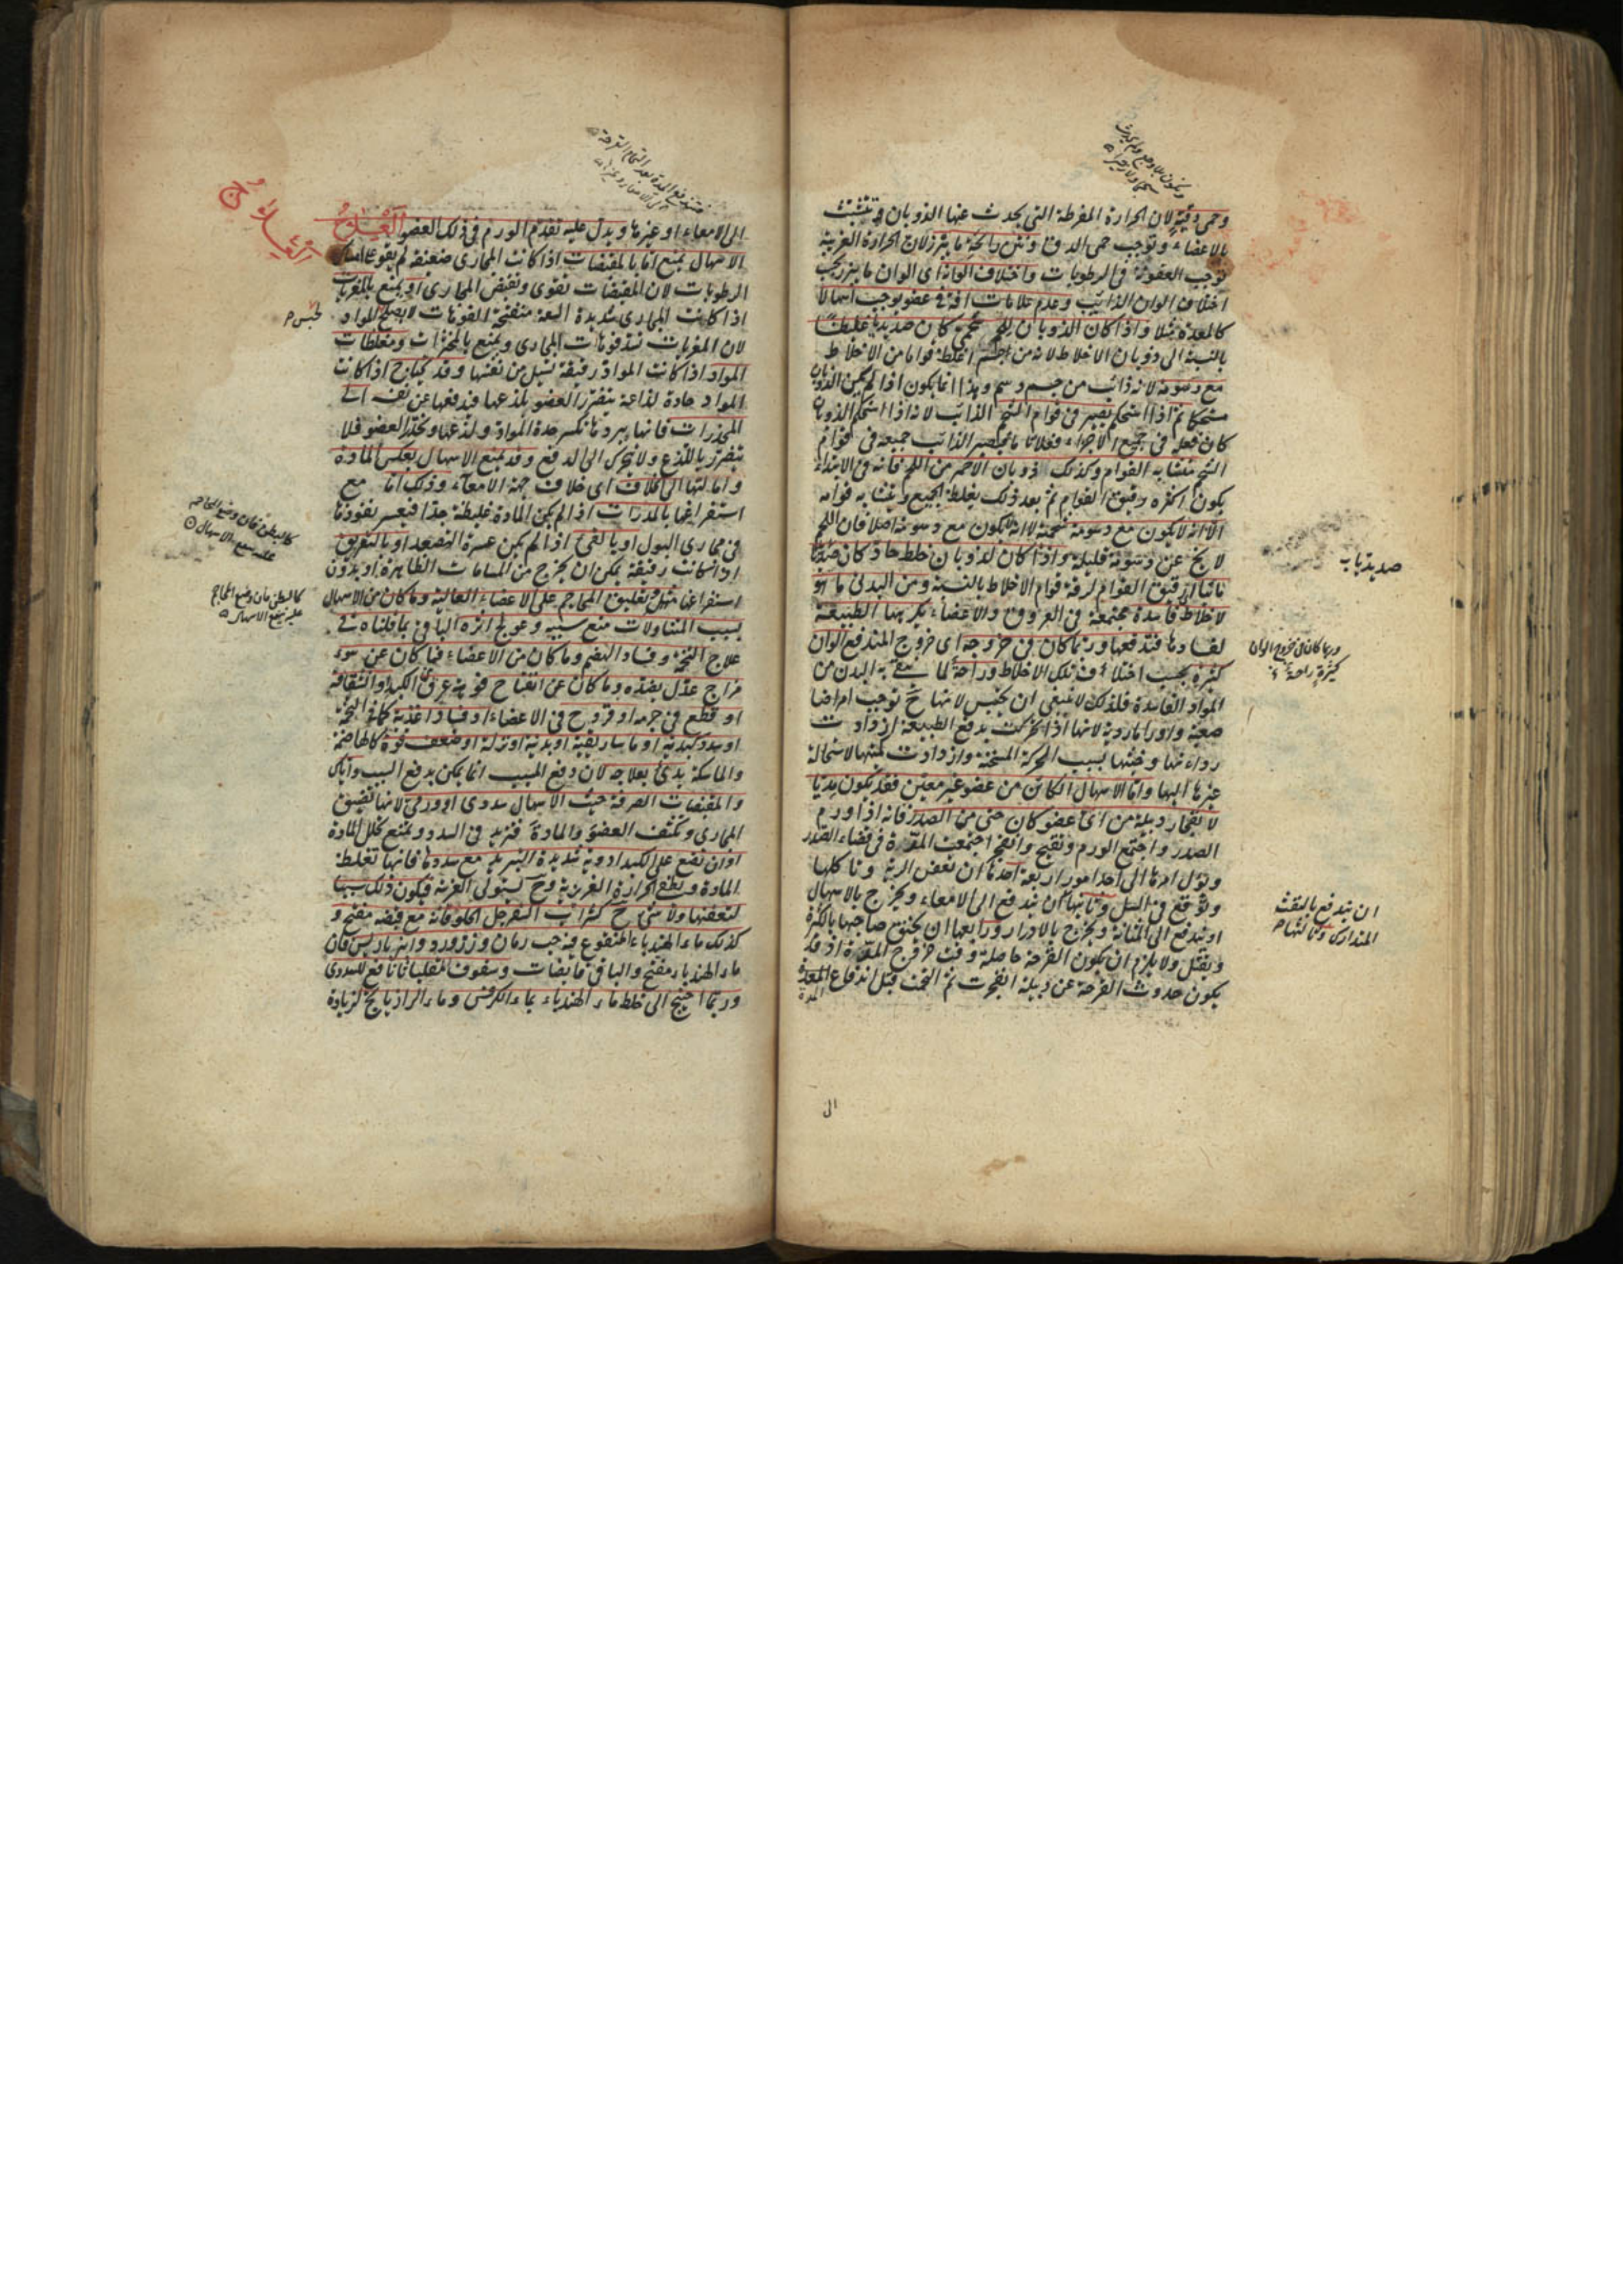 وحمى دقية لان الحرارة المفرطة التى يحدث عنها الذوبان تتشبث
بالاعضاء وتوجب حمى الدق ونتن رائحة ما يبرز لان الحرارة الغريبة
توجب العفونة فى الرطوبات واختلاف الوانه اى الوان ما يبرز بحسب
اختلاف الوان الذائب وعدم علامات آفة فى عضو يوجب اسهالا
كالمعدة مثلا واذا كان الذوبان للحم شحمى كان صديديا غليظا
بالنسبة الى ذوبان الاخلاط لانه من جسم اغلظ قواما من الاخلاط
مع دسومة لانه ذائب من جسم دسم وهذا انما يكون اذا لم يكن الذوبان
مستحكما ثم اذا استحكم يصير فى قوام الشحم الذائب لانه اذا استحكم الذوبان
كان فعله فى جميع الاجزاء فعلا تاما فيصير الذائب جميعه فى قوام
الشحم متشابه القوام وكذلك ذوبان الاحمر من اللحم فانه فى الابتداء
يكون اكثره رقيق القوام ثم بعد ذلك يغلظ الجميع ويتشابه قوامه
الا انه لا يكون مع دسومة شحمية لا انه لا يكون مع دسومة اصلا فان اللحم
لا يخ عن دسومة قليلة واذا كان الذوبان خلط حاد كان صديدا
مائيا اى رقيق القوام لرقة قوام الاخلاط بالنسبة ومن البدنى ما هو
لاخلاط فاسدة مجتمعة فى العروق والاعضاء يكرهها الطبيعة
لفسادها فتدفعها وربما كان فى خروجه اى خروج المندفع الوان
كثيرة بحسب اختلاف تلك الاخلاط وراحة لما ينقى به البدن من
المواد الفاسدة فلذلك لا ينبغى ان يحبس لانها ح توجب امراضا
صعبة واوراما ردية لانها اذا تحركت بدفع الطبيعة ازدادت
رداءتها وخبثها بسبب الحركة المسخنة وازدادت تهيئها لاستحالة
غيرها اليها واما الاسهال الكائن من عضو غير معين فقد يكون مديا
لانفجار دبيلة من اى عضو كان حتى من الصدر فانه اذا ورم
الصدر واجتمع الورم وتقيح وانفجر اجتمعت المدة فى فضاء الصدر
ويؤل امرها الى احد امور اربعة احدها ان تعفن الرية وتاكلها
وتوقع فى السل وثانيها ان يندفع الى الامعاء ويخرج بالاسهال
او يندفع الى المثانة ويخرج بالادرار ورابعها ان يختنق صاحبها بالكثرة
ويقتل ولا يلزم ان يكون القرحة حاصلة وقت خروج المدة اذ قد
يكون حدوث القرحة عن دبيلة انفجرت ثم التحمت قبل اندفاع المدة
صديد ذياب
وربما كان فى خروج الوان
كثيرة راحة
ان يندفع بالنفث
المتدارك وثالثها
الى
الى الامعاء او غيرها ويدل عليه تقدم الورم فى ذلك العضو العلاج
الاسهال يمنع اما بالمقبضات اذا كانت المجارى ضعيفة لم يقو على امساك
الرطوبات لان المقبضات تقوى وتقبض المجارى او يمنع بالمغريات
اذا كانت المجارى شديدة السعة منفتحة الفوهات لا يصلح للمواد
لان المغريات تسد فوهات المجارى ويمنع بالمخثرات ومغلظات
المواد اذا كانت المواد رقيقة تسيل من نفسها وقد يحتاج اذا كانت
المواد حادة لذاعة يتضرر العضو بلذعها فيدفعها عن نفسه الى
المخدرات فانها ببردها تكسر حدة المواد ولذعها وتخدر العضو فلا
يتضرر باللذع ولا يتحرك الى الدفع وقد يمنع الاسهال بعكس المادة
وامالتها الى الخلاف اى خلاف جهة الامعاء وذلك اما مع
استفراغها بالمدرات اذا لم يكن المادة غليظة جدا فيعسر نفوذها
فى مجارى البول او بالقى اذا لم يكن عسرة التصعد او بالتعريق
اذا كانت رقيقة يمكن ان يخرج من المسامات الظاهرة او بدون
استفراغها مثل تعليق المحاجم على الاعضاء العالية وما كان من الاسهال
بسبب المتناولات منع سببه وعولج اثره الباقى بما قلناه فى
علاج التخمة وفساد الهضم وما كان من الاعضاء فما كان عن سوء
مزاج عدل بضده وما كان عن انفتاح فوهة عرق الكبد او انشقاقه
او قطع فى جرمه او قروح فى الاعضاء او فساد اغذية كما فى التخمة
او سدد كبدية او ماساريقية او بدنية او نزلة او ضعف قوة كالهاضمة
والماسكة بدئ بعلاجه لان دفع المسبب انما يمكن بدفع السبب واياك
والمقبضات الصرفة حيث الاسهال سددى او ورمى لانها تضيق
المجارى وتكثف العضو والمادة فتزيد فى السدد ويمنع تحلل المادة
او ان تضع على الكبد ادوية شديدة التبريد مع سددها فانها تغلظ
المادة وتطفئ الحرارة الغريزية وح يستولى الغريبة فيكون ذلك سببا
لتعفنها ولا شئ ح كشراب السفرجل الحلو فانه مع قبضه مفتح و
كذلك ماء الهندباء المنقوع فيه حب رمان وزرورد وانبرباريس فان
ماء الهندباء مفتح والباقى قابضات وسفوف المقلياثا نافع للسددى
وربما احتيج الى خلط ماء الهندباء بماء الكرفس وماء الرازيانج لزيادة
يحبس
كالبطن فان وضع المحاجم
عليه يمنع الاسهال
كالبطن فان وضع المحاجم
عليه يمنع الاسهال